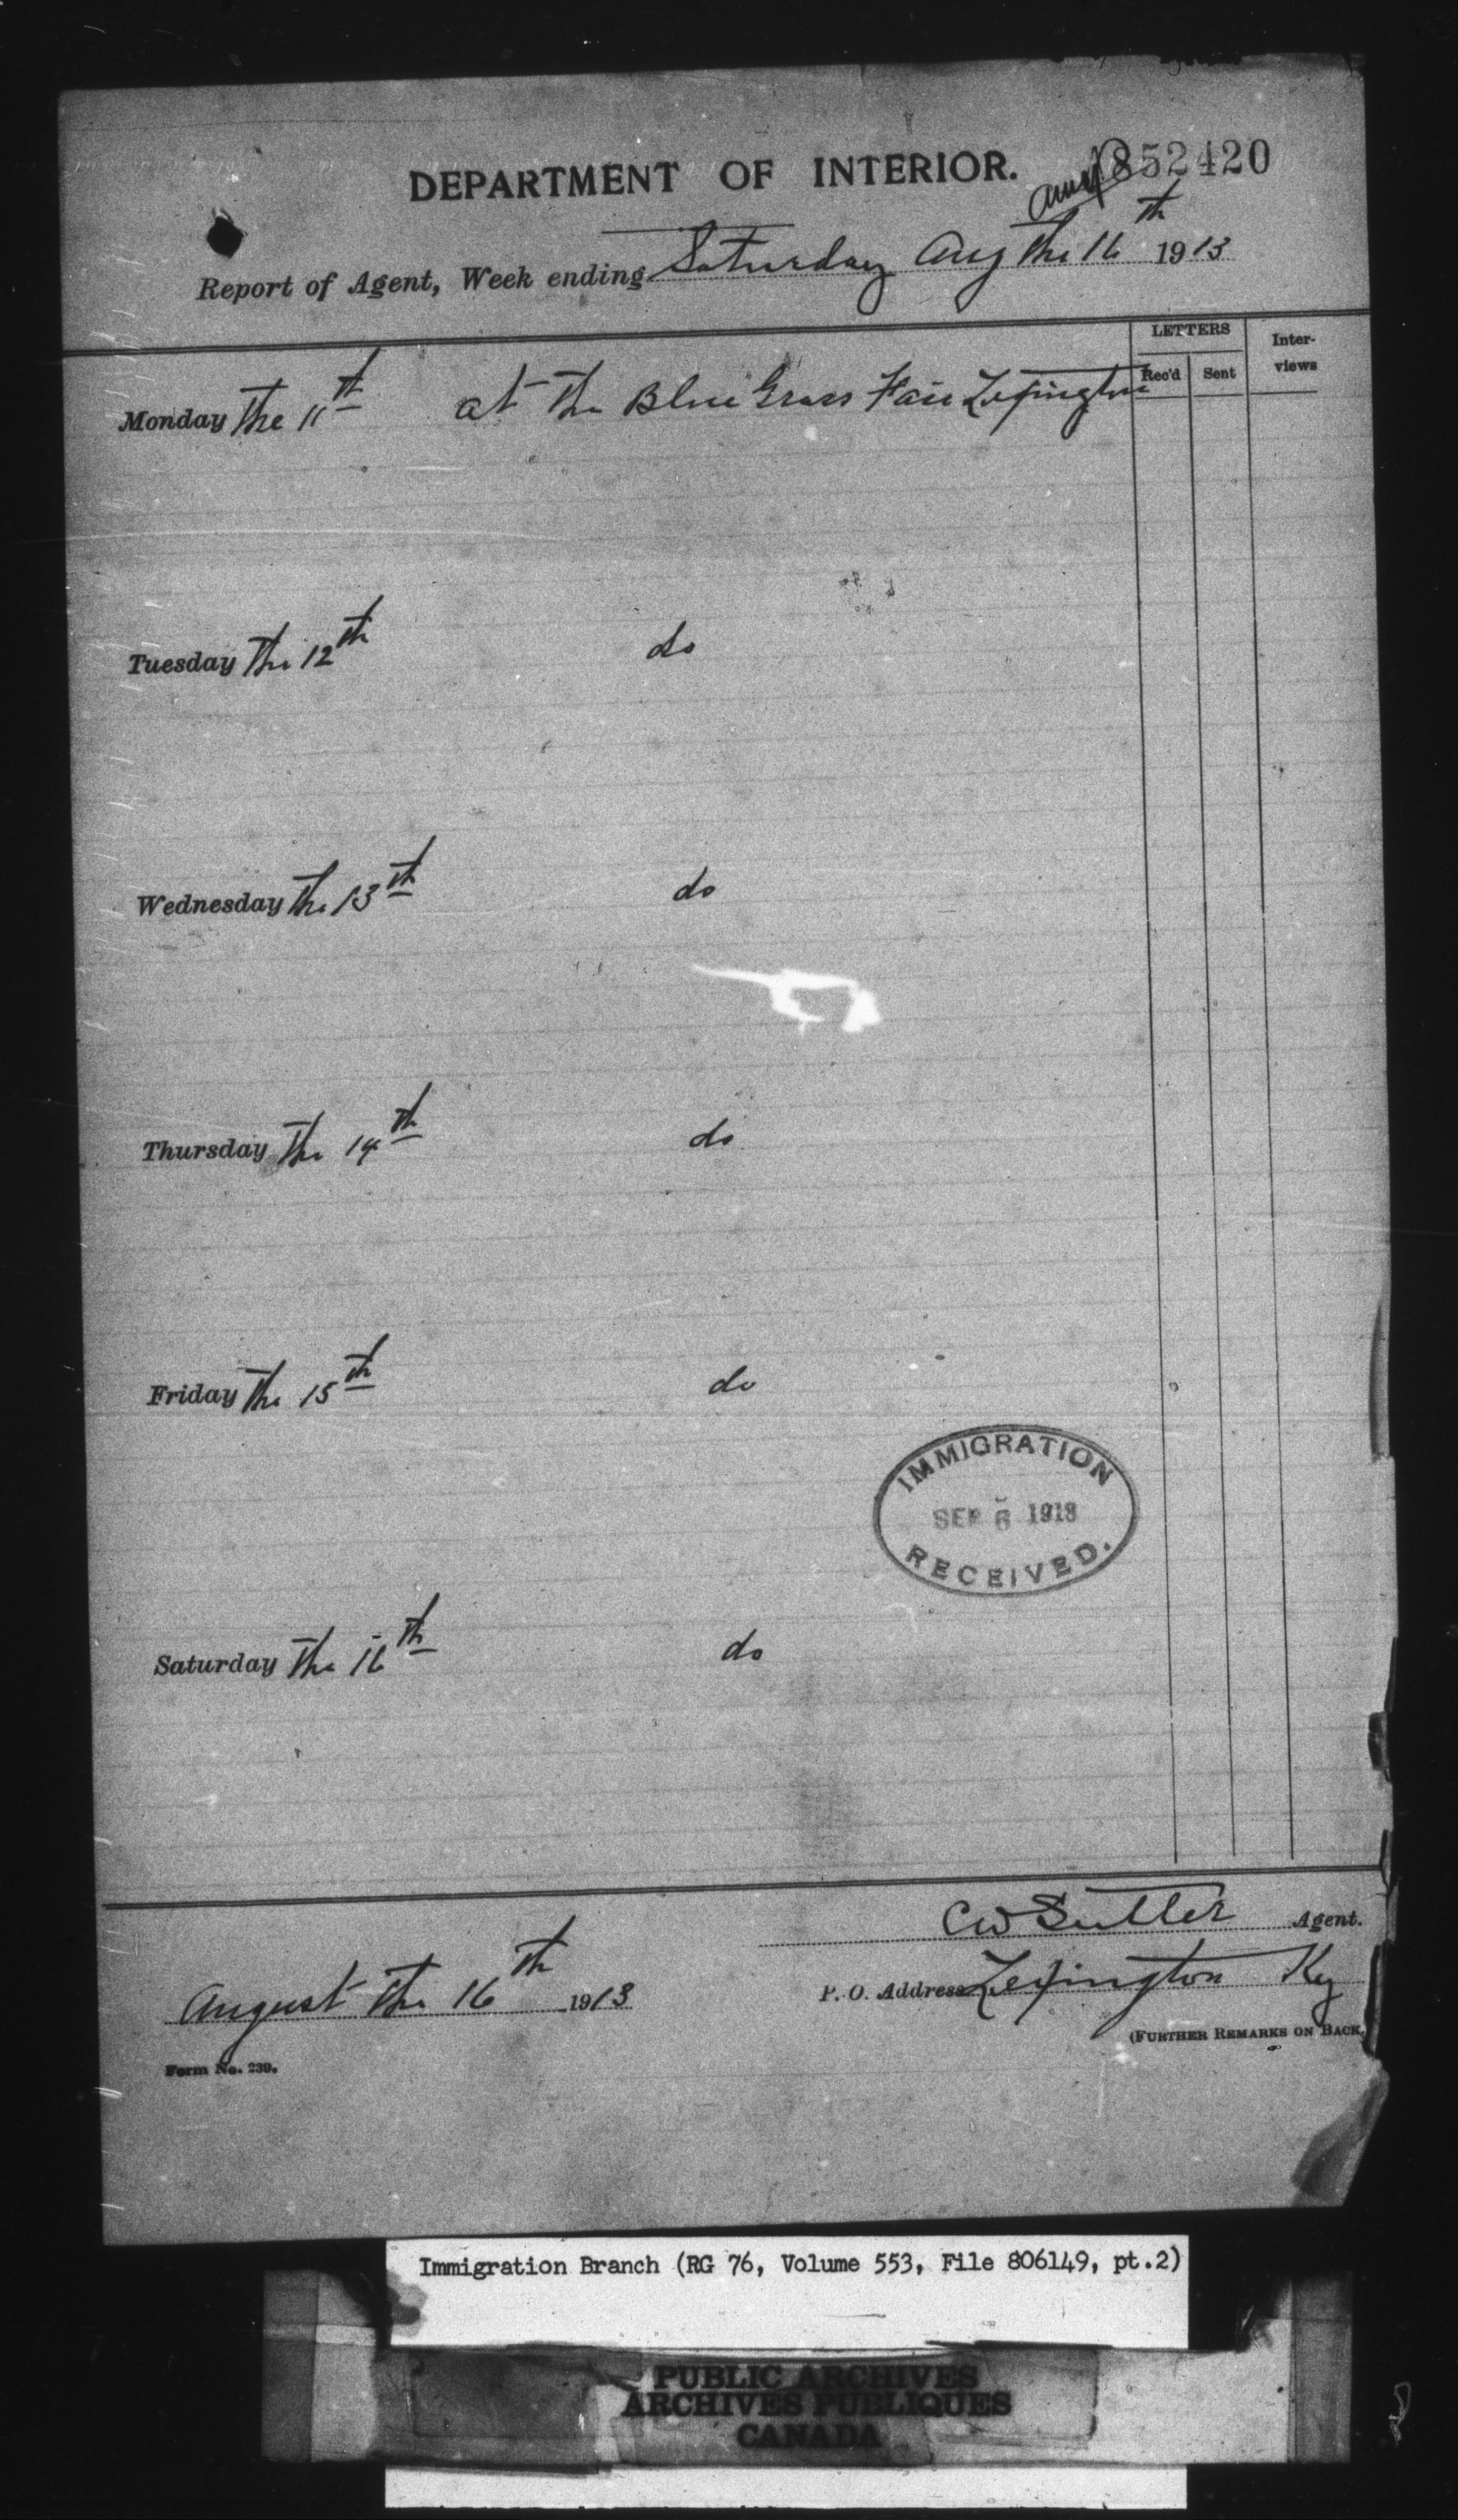 852420
DEPARTMENT OF INTERIOR.
Report of Agent, Week ending Saturday Aug the 16th 1913
LETTERS
Rec'd Sent
Inter-
views
Monday the 11th at the Blue Grass Fair Lexington
Tuesday the 12th do
Wednesday the 13th do
Thursday the 14th do
Friday the 15th do
IMMIGRATION
SEP 6 1913
RECEIVED.
Saturday the 16th do
CW Sutter Agent.
August the 16th 1913
P. O. Address Lexington Ky
(FURTHER REMARKS ON BACK.
Form No. 239.
Immigration Branch (RG 76, Volume 553, File 806149, pt.2)
PUBLIC ARCHIVES
ARCHIVES PUBLIQUES
CANADA